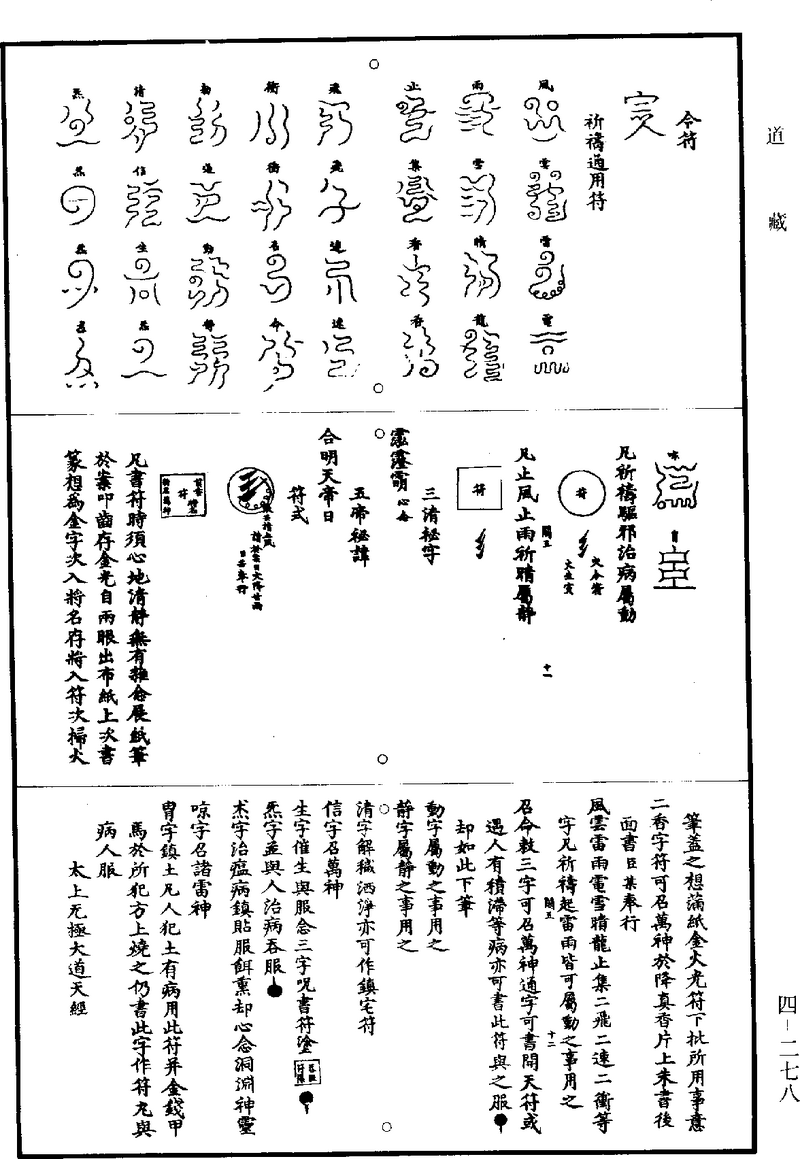 道藏
令符
祈禱通用符
風 雲 雷 電
雨 雪 晴 龍
止 集 香 香
飛 飛 速 速
衝 衝 召 命
勑 通 動 靜
清 信 生 炁
炁
凡祈禱驅邪治病屬動
符
火令符
闕五
凡止風止雨祈晴屬靜
十一
符
三清秘字
心念
五帝秘諱
合明天帝日
符式
符
凡書符時須心地清靜無有雜念展紙筆
於案叩齒存金光自兩眼出布紙上次書
篆想為金字次入將名存將入符次掃火
筆蓋之想滿紙金火光符下批所用事意
二香字符可召萬神於降真香片上朱書後
面書臣某奉行
風雲雷雨電雪晴龍止集二飛二速二衝等
字凡祈禱起雷雨皆可屬動之事用之
闕五
十二
召命敕三字可召萬神通字可書問天符或
遇人有積滯等病亦可書此符與之服
却如此下筆
動字屬動之事用之
靜字屬靜之事用之
清字解穢洒淨亦可作鎮宅符
信字召萬神
生字催生與服念三字呪書符塗
炁字並與人治病吞服
杰字治瘟病鎮貼服餌熏却心念洞淵神靈
㖫字召諸雷神
冑字鎮土凡人犯土有病用此符并金錢甲
馬於所犯方上燒之仍書此字作符丸與
病人服
太上无極大道天經
四-二七八